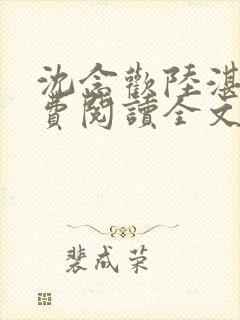 沈念歡陸湛
費閱讀全文
裴成荣